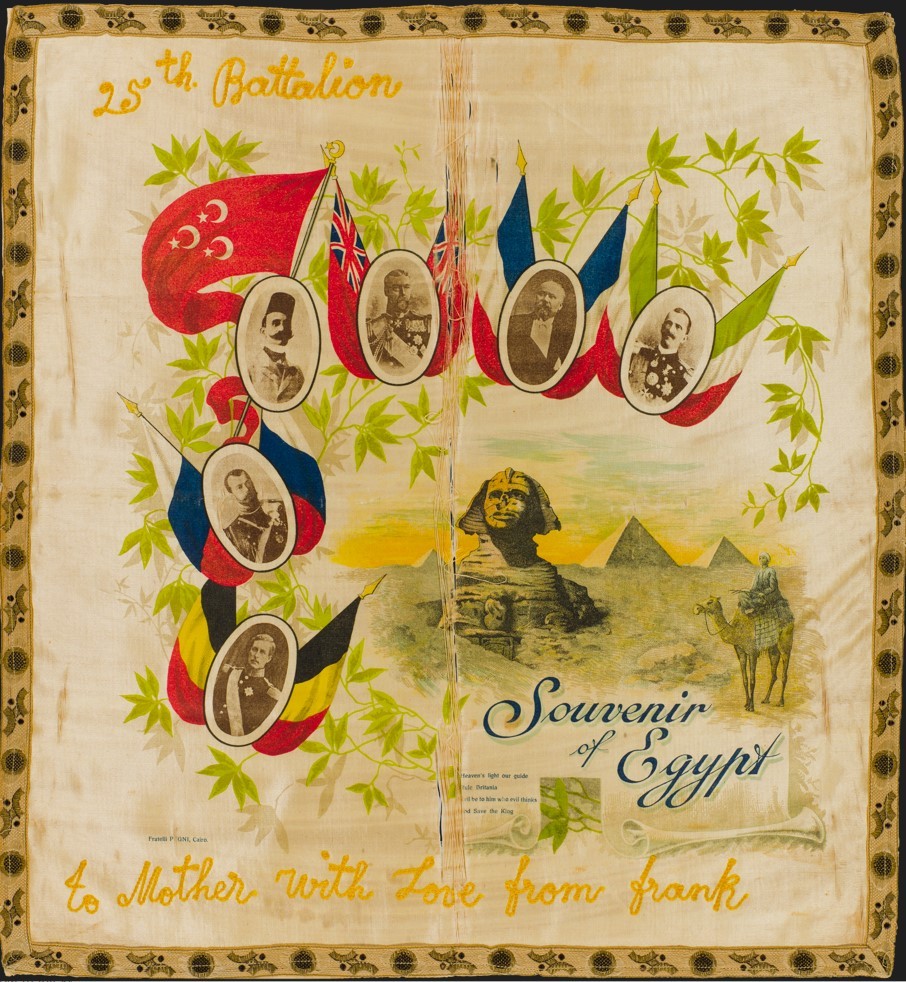 25th. Battalion
Souvenir
of Egypt
Heaven's light our guide
Rule Britania
to him who evil thinks
Save the King
Fratelli Cairo
to Mother with Love from frank